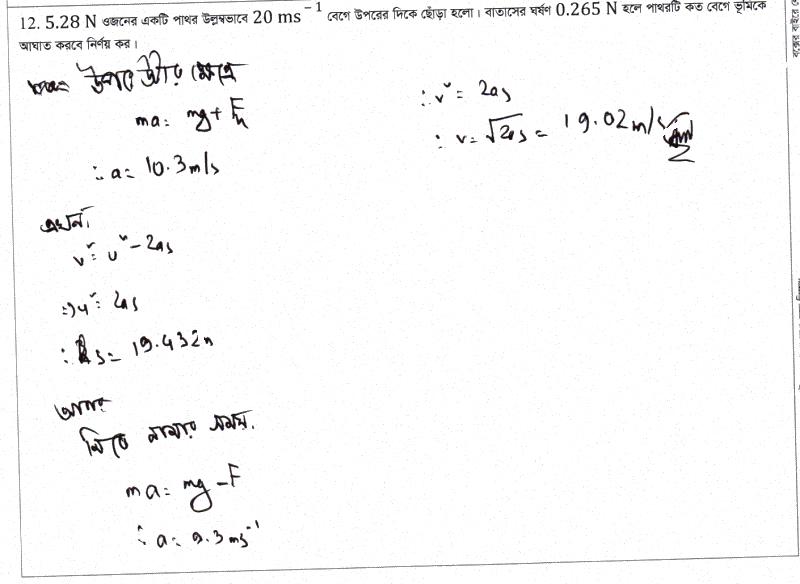 12. 5.28 N ওজনের একটি পাথর উলম্বভাবে 20 ms⁻¹ বেগে উপরের দিকে ছোঁড়া হলো। বাতাসের ঘর্ষণ 0.265 N হলে পাথরটি কত বেগে ভূমিকে
আঘাত করবে নির্ণয় কর।
উপরে উঠার ক্ষেত্রে
ma = mg + Fₖ
∴ a = 10.3 m/s
এখন,
v² = u² - 2as
⇒ u² = 2as
∴ s = 19.432 m
আবার
নিচে নামার সময়,
ma = mg - F
∴ a = 9.3 ms⁻¹
∴ v² = 2as
∴ v = √2as = 19.02 m/s